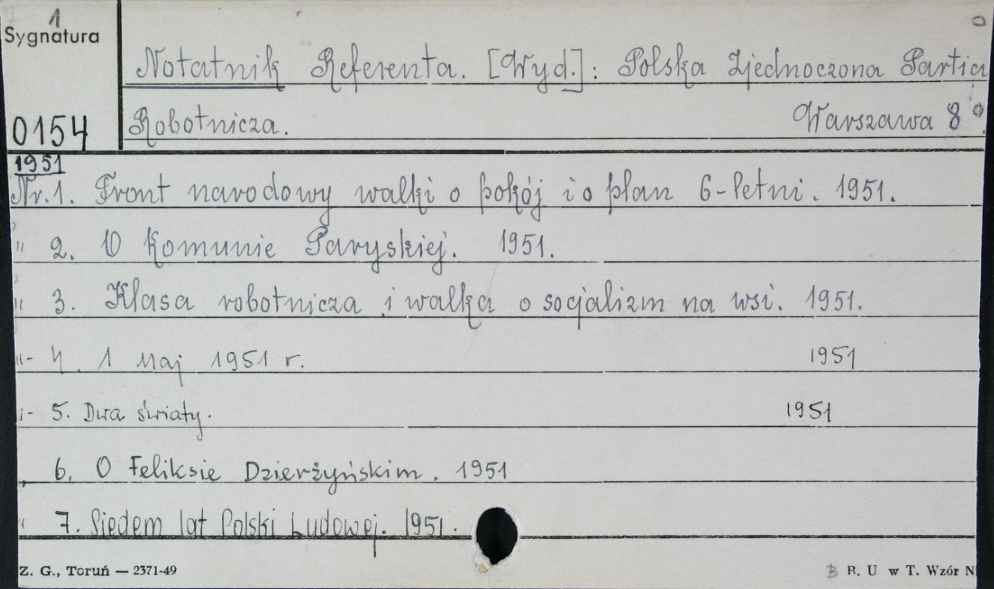 1
Sygnatura
Notatnik Referenta. [Wyd.]: Polska Zjednoczona Partia
0154 Robotnicza. Warszawa 8°.
1951
Nr. 1. Front narodowy walki o pokój i o plan 6-letni. 1951.
" 2. O Komunie Paryskiej. 1951.
" 3. Klasa robotnicza i walka o socjalizm na wsi. 1951.
"- 4. 1 Maj 1951 r. 1951
"- 5. Dwa światy. 1951
" 6. O Feliksie Dzierżyńskim. 1951
" 7. Siedem lat Polski Ludowej. 1951.
Z. G., Toruń — 2371-49 B R. U w T. Wzór N